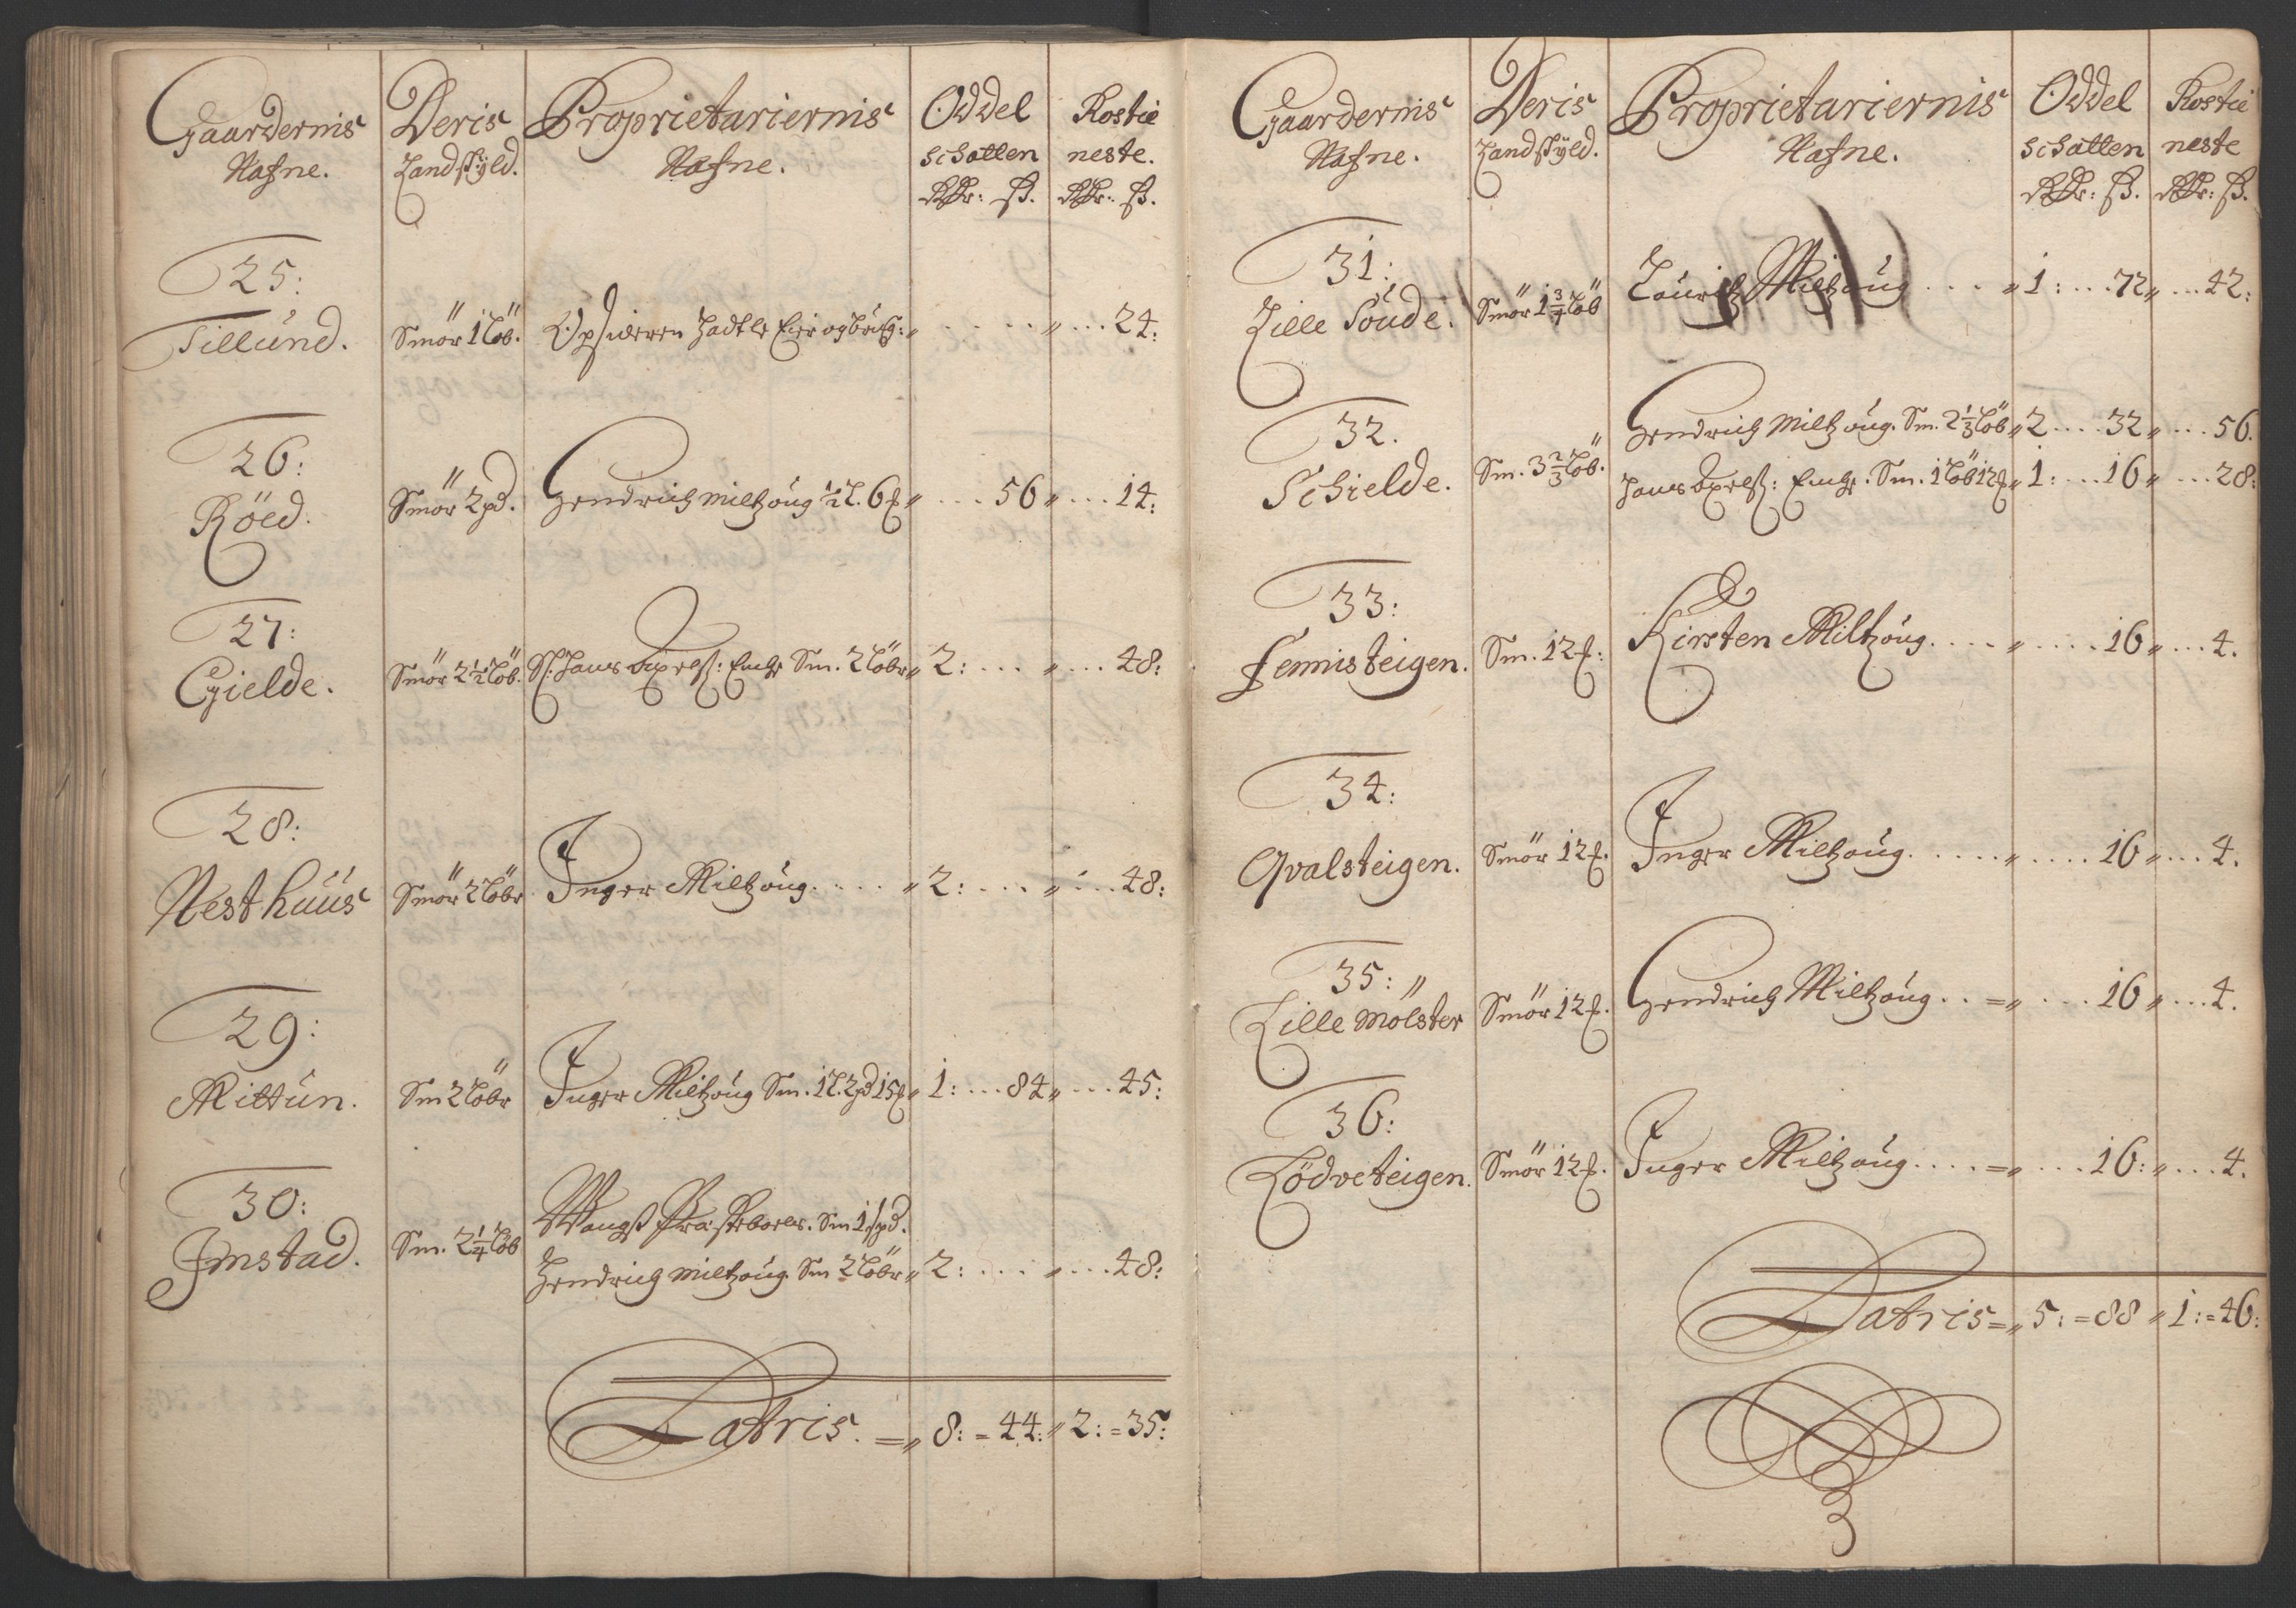 Gaardernis Nafne.
Deris Landskyld.
Proprietariernis Nafne.
Oddel schatten Rdr: ß.
Rostieneste. Rdr: ß.
25:
Tillund.
Smör 1 Löb.
24:
26:
Röed.
Smör 2 pd.
Hendrich Miltzoug ½ L. 6
56 14:
27:
Gielde.
Smör 2½ Löb.
Sl: Jens Sm. 2 Löber
2: 48:
28:
Nesthuus
Smör 2 Löbr
Inger Miltzoug
2: 48:
29:
Mittun.
Sm 2 Löbr
Inger Miltzoug Sm. 1 L. 2 pd 15
1: 84 45:
30:
Imstad.
Sm. 2¼ Löb
Wangs Præsteboele. Sm 1 spd.
Hendrich Miltzoug. Sm 2 Löbr
2: 48:
Latris. 8: = 44: 2: = 35:
Gaardernis Nafne.
Deris Landskyld.
Proprietariernis Nafne.
Oddel schatten Rdr: ß.
Rostieneste Rdr: ß.
31:
Lille Soude.
Smör 1¾ Löb
Lauritz Miltzoug
1: 72 42:
32.
Schielde.
Sm. 3⅔ Löb.
Hendrich Miltzoug. Sm. 2⅓ Löb
2 32 56.
Sm. 1 Löb 12
1: 16 28:
33:
Femisteigen.
Sm. 12
Kirsten Miltzoug
16 4.
34:
Qvalsteigen.
Smör 12
Inger Miltzoug
16 4.
35:
Lille Molster
Smör 12
Hendrich Miltzoug
16 4.
36:
Lödveteigen.
Smör 12
Inger Miltzoug
16: 4.
Latris = 5: = 88 1: = 46: